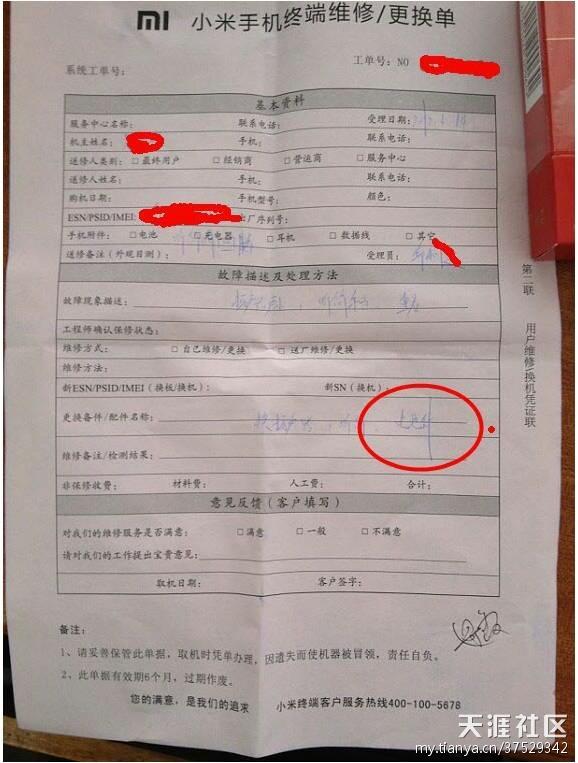 MI 小米手机终端维修/更换单
系统工单号: 工单号: NO
基本资料
服务中心名称: 联系电话: 受理日期:
机主姓名: 手机: 联系电话:
送修人类别: □ 最终用户 □ 经销商 □ 营运商 □ 服务中心
送修人姓名: 手机: 联系电话:
购机日期: 手机型号: 颜色:
ESN/PSID/IMEI: 出厂序列号:
手机附件: □ 电池 □ 充电器 □ 耳机 □ 数据线 □ 其它
送修备注(外观目测): 受理员:
故障描述及处理方法
故障现象描述:
工程师确认保修状态:
维修方式: □ 自己维修/更换 □ 送厂维修/更换
维修方法:
新ESN/PSID/IMEI(换板/换机): 新SN(换机):
更换备件/配件名称:
维修备注/检测结果:
非保修收费: 材料费: 人工费: 合计:
意见反馈(客户填写)
对我们的维修服务是否满意: □ 满意 □ 一般 □ 不满意
请对我们的工作提出宝贵意见:
取机日期: 客户签字:
第二联 用户维修/换机凭证联
备注:
1、请妥善保管此单据,取机时凭单办理,因遗失而使机器被冒领,责任自负。
2、此单据有效期6个月,过期作废。
您的满意,是我们的追求 小米终端客户服务热线400-100-5678
天涯社区
my.tianya.cn/37529342